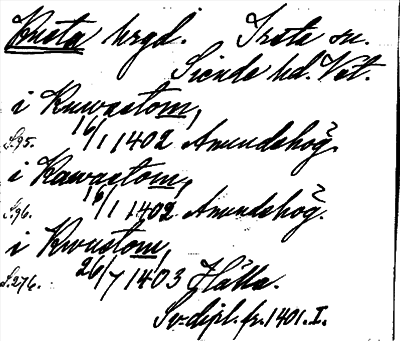 Kusta hrgd. Irsta sn.
Siende hd. Vst.
i Knwastom,
S.95. 16/1 1402 Amundshög.
i Kawastom,
S.96. 16/1 1402 Amundshög.
i Kwustom,
S.276. 26/7 1403 Hälla.
Sv. dipl. fr. 1401. I.